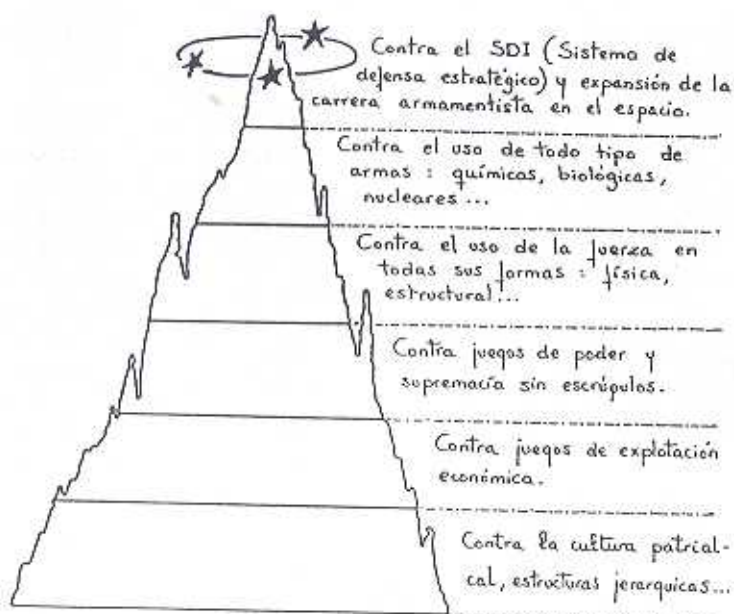 Contra el SDI (Sistema de
defensa estratégico) y expansión de la
carrera armamentista en el espacio.
Contra el uso de todo tipo de
armas : químicas, biológicas,
nucleares ...
Contra el uso de la fuerza en
todas sus formas : física,
estructural...
Contra juegos de poder y
supremacía sin escrúpulos.
Contra juegos de explotación
económica.
Contra la cultura patrial-
cal, estructuras jerarquicas...